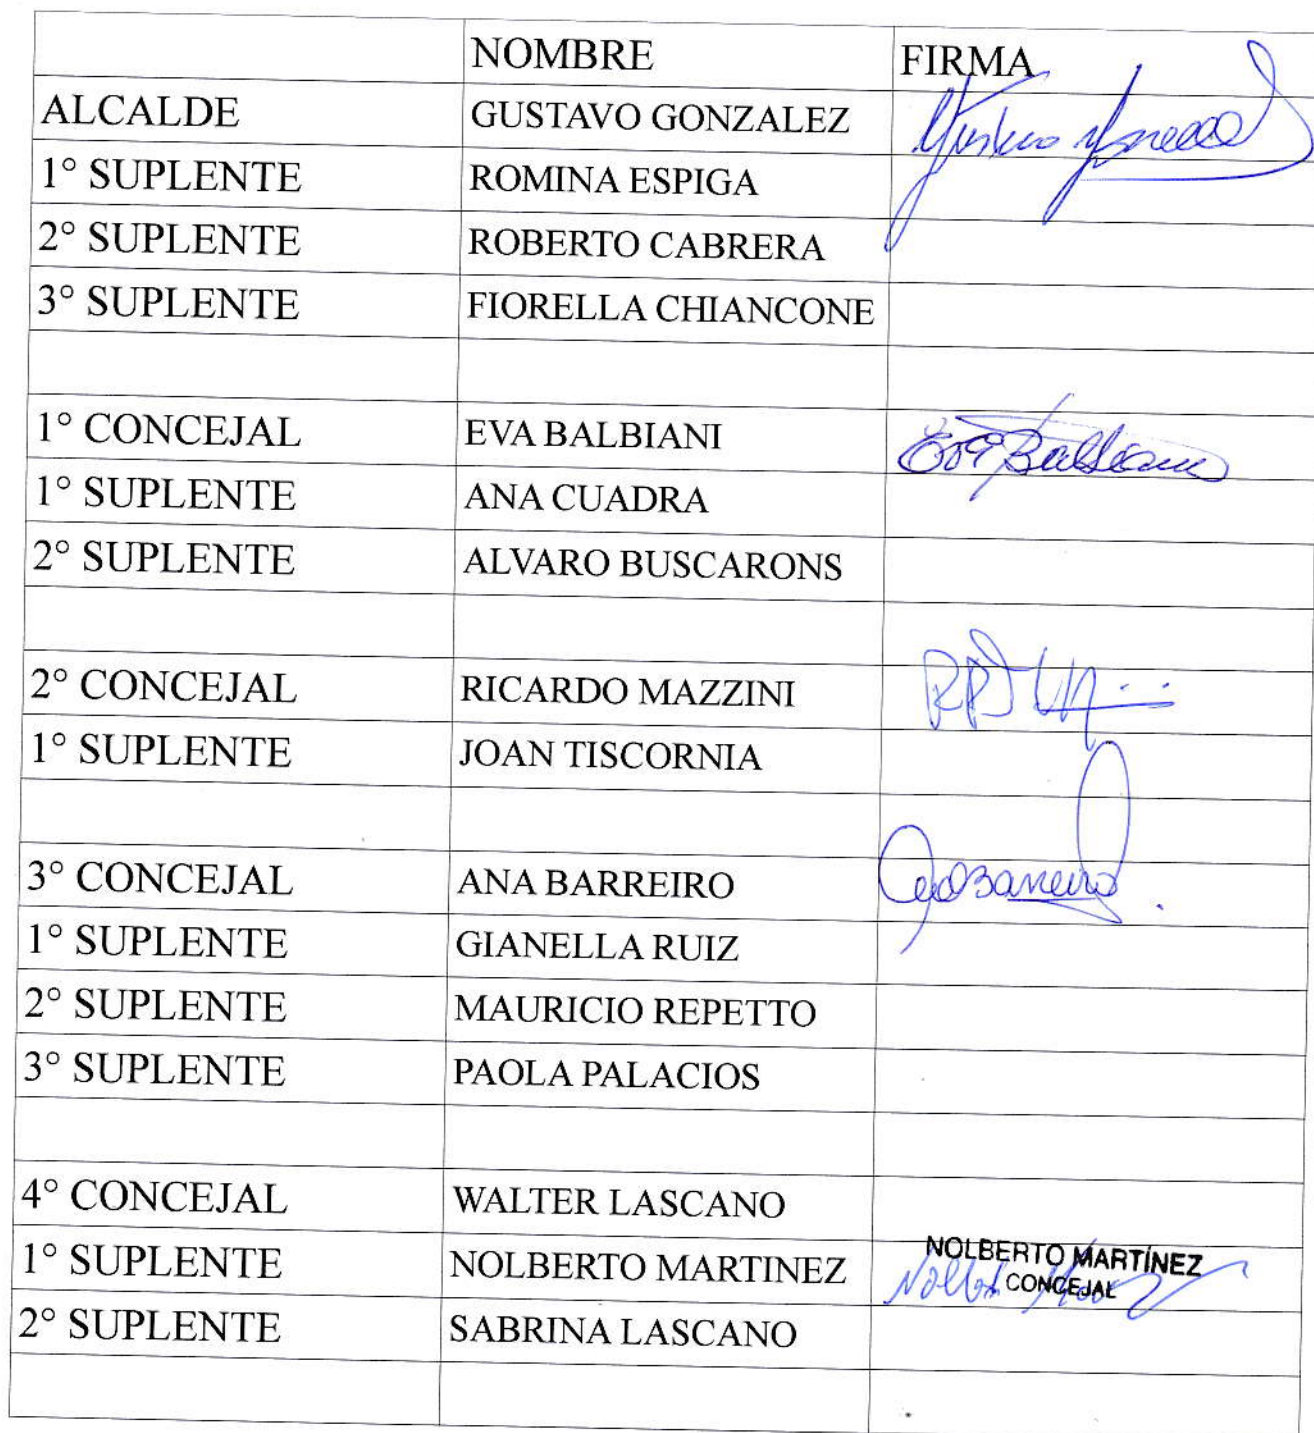 NOMBRE FIRMA
ALCALDE GUSTAVO GONZALEZ Gustavo Gonzalez
1° SUPLENTE ROMINA ESPIGA
2° SUPLENTE ROBERTO CABRERA
3° SUPLENTE FIORELLA CHIANCONE
1° CONCEJAL EVA BALBIANI Eva Balbiani
1° SUPLENTE ANA CUADRA
2° SUPLENTE ALVARO BUSCARONS
2° CONCEJAL RICARDO MAZZINI
1° SUPLENTE JOAN TISCORNIA
3° CONCEJAL ANA BARREIRO Barreiro
1° SUPLENTE GIANELLA RUIZ
2° SUPLENTE MAURICIO REPETTO
3° SUPLENTE PAOLA PALACIOS
4° CONCEJAL WALTER LASCANO
1° SUPLENTE NOLBERTO MARTINEZ NOLBERTO MARTÍNEZ
CONCEJAL
2° SUPLENTE SABRINA LASCANO